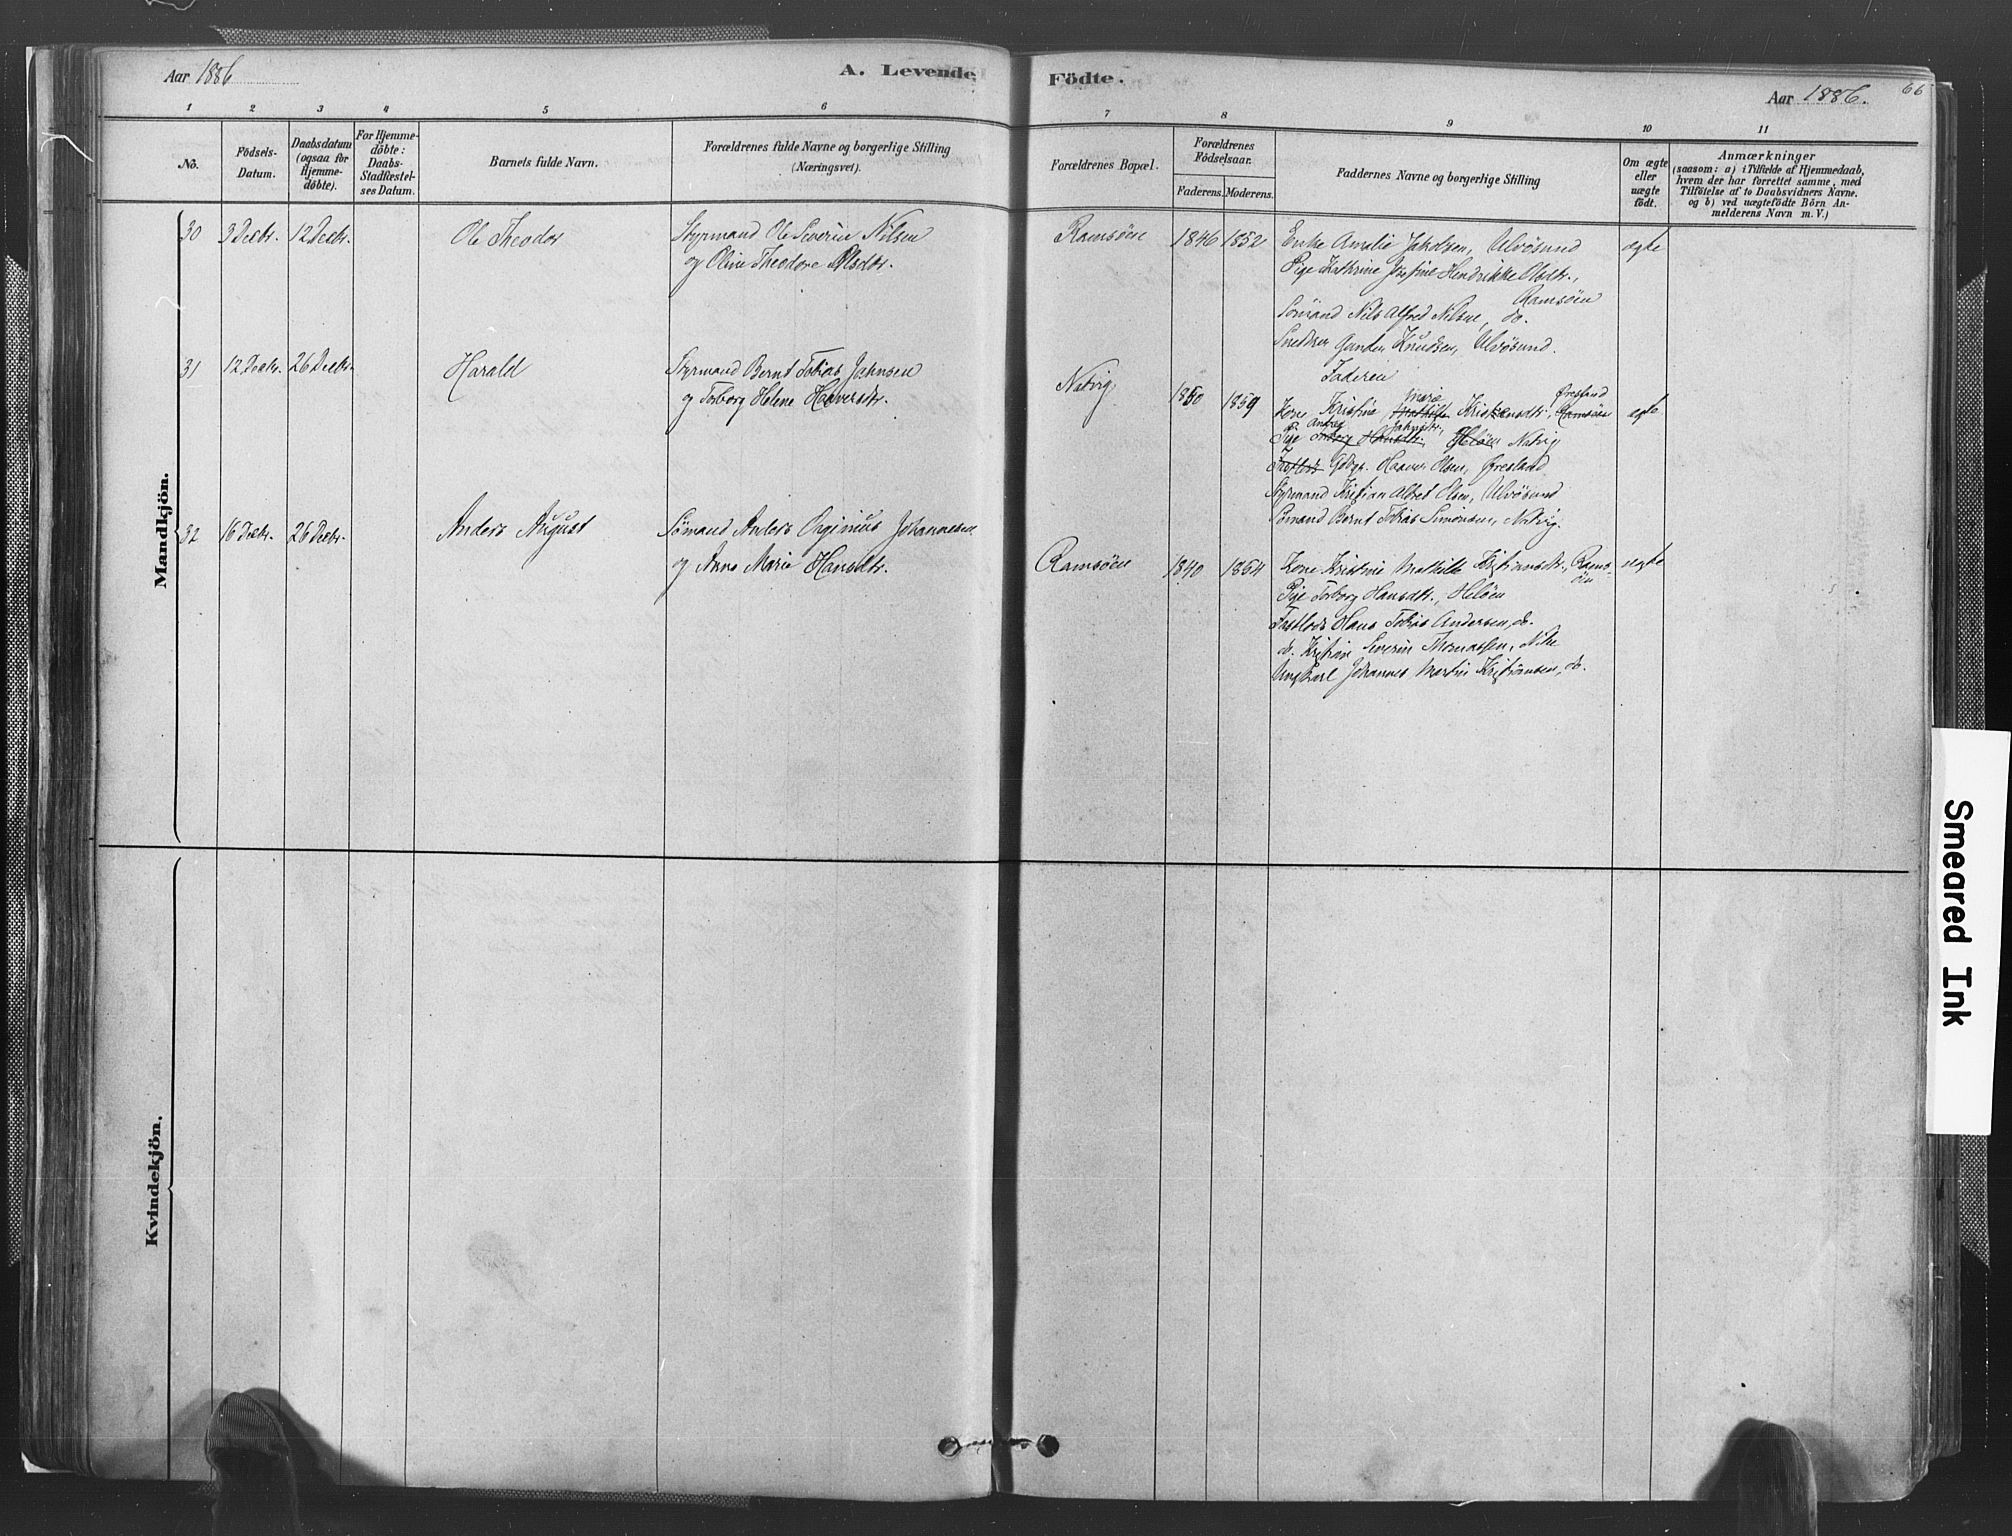 Aar 1886
A. Levende
Födte.
Aar 1886.
66
1 2 3 4 5 6 7 8 9 10 11
No.
Födsels-
Datum.
Daabsdatum
(ogsaa for
Hjemme-
döbte).
For Hjemme-
döbte:
Daabs-
Stadfæstel-
ses Datum.
Barnets fulde Navn.
Forældrenes fulde Navne og borgerlige Stilling
(Næringsvei).
Forældrenes Bopæl.
Forældrenes
Födselsaar.
Faderens. Moderens.
Faddernes Navne og borgerlige Stilling
Om ægte
eller
uægte
født.
Anmærkninger
(saasom: a) i Tilfælde af Hjemmedaab,
hvem der har forrettet samme, med
Tilföielse af to Daabsvidners Navne.
og b) ved uægtefödte Börn An-
melderens Navn m. V.)
Mandkjön.
30 3 Decbr. 12 Decbr. Ole Theodor
Styrmand Ole Severin Nilsen
og Oline Theodore Olsdtr.
Ramsöen 1846 1852
Enke Amalie Jakobsen, Ulvösund
Pige Kathrine Josefine Hendrikke Olsdtr.,
Ramsöen
Sömand Nils Alfred Nilsen, do.
Snedker Gunder Knudsen, Ulvösund.
Faderen
ægte
31 12 Decbr. 26 Decbr. Harald
Styrmand Bernt Tobias Jahnsen
og Torborg Helene Haaversdtr.
Natvig 1850 1859
Marie Øresland
Kone Kristine Mathilde Kristensdtr. Ramsöen
Andrea Jahnsdtr.,
Pige Torborg Hansdtr., Helöen Natvig
Gbdgr. Haaver Olsen, Øresland
Styrmand Kristian Alfred Olsen, Ulvösund
Sömand Bernt Tobias Simonsen, Natvig.
ægte
32 16 Decbr. 26 Decbr. Anders August
Sömand Anders Orginius Johannesen
og Anne Marie Hansdtr.
Ramsöen 1840 1854
Kone Kristine Mathilde Kristiansdtr., Rams-
öen
Pige Torborg Hansdtr., Helöen
Hans Tobias Andersen, do.
do. Kristian Severin Thomassen,
Ungkarl Johannes Martin Kristiansen, do.
ægte
Kvindekjön.
Smeared Ink